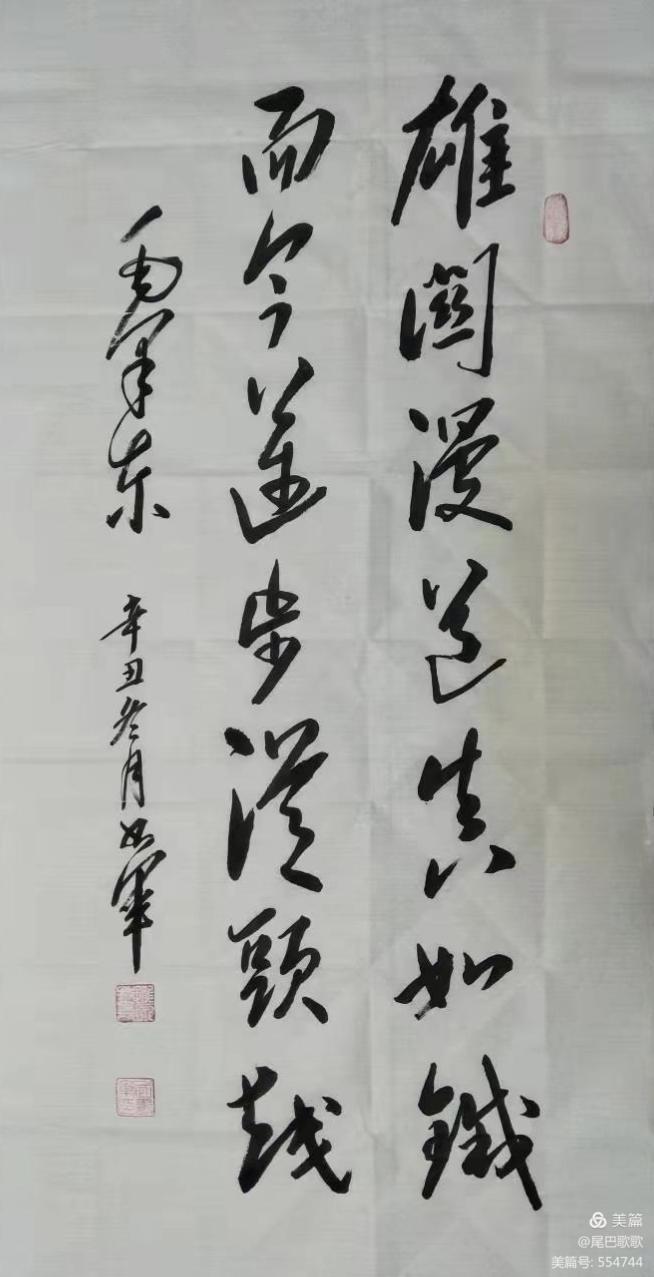 雄關漫道真如鐵
而今邁步從頭越
毛澤東
辛丑冬月
美篇
@尾巴歌歌
美篇号: 554744